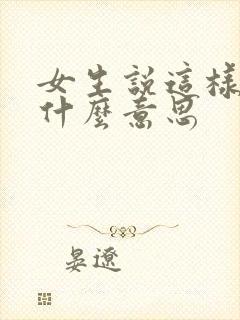 女生說這樣
什麼意思
晏遼